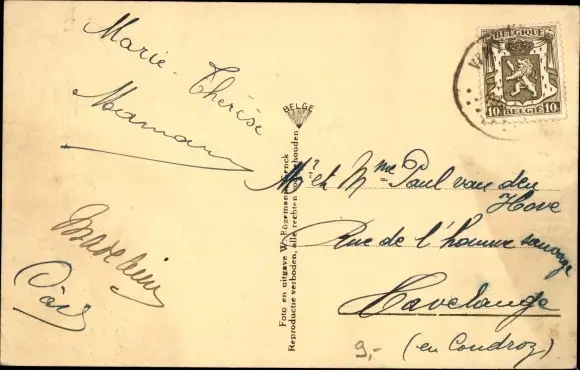 Marie-Thérèse
Maman
BELGIQUE
10 BELGIË 10
BELGE
Foto en uitgave W.
Reproductie verboden, alle rechten voorbehouden
Mr et Mme Paul van den
Hove
Rue de l'homme sauvage
Havelange
(en Condroz)
9,-